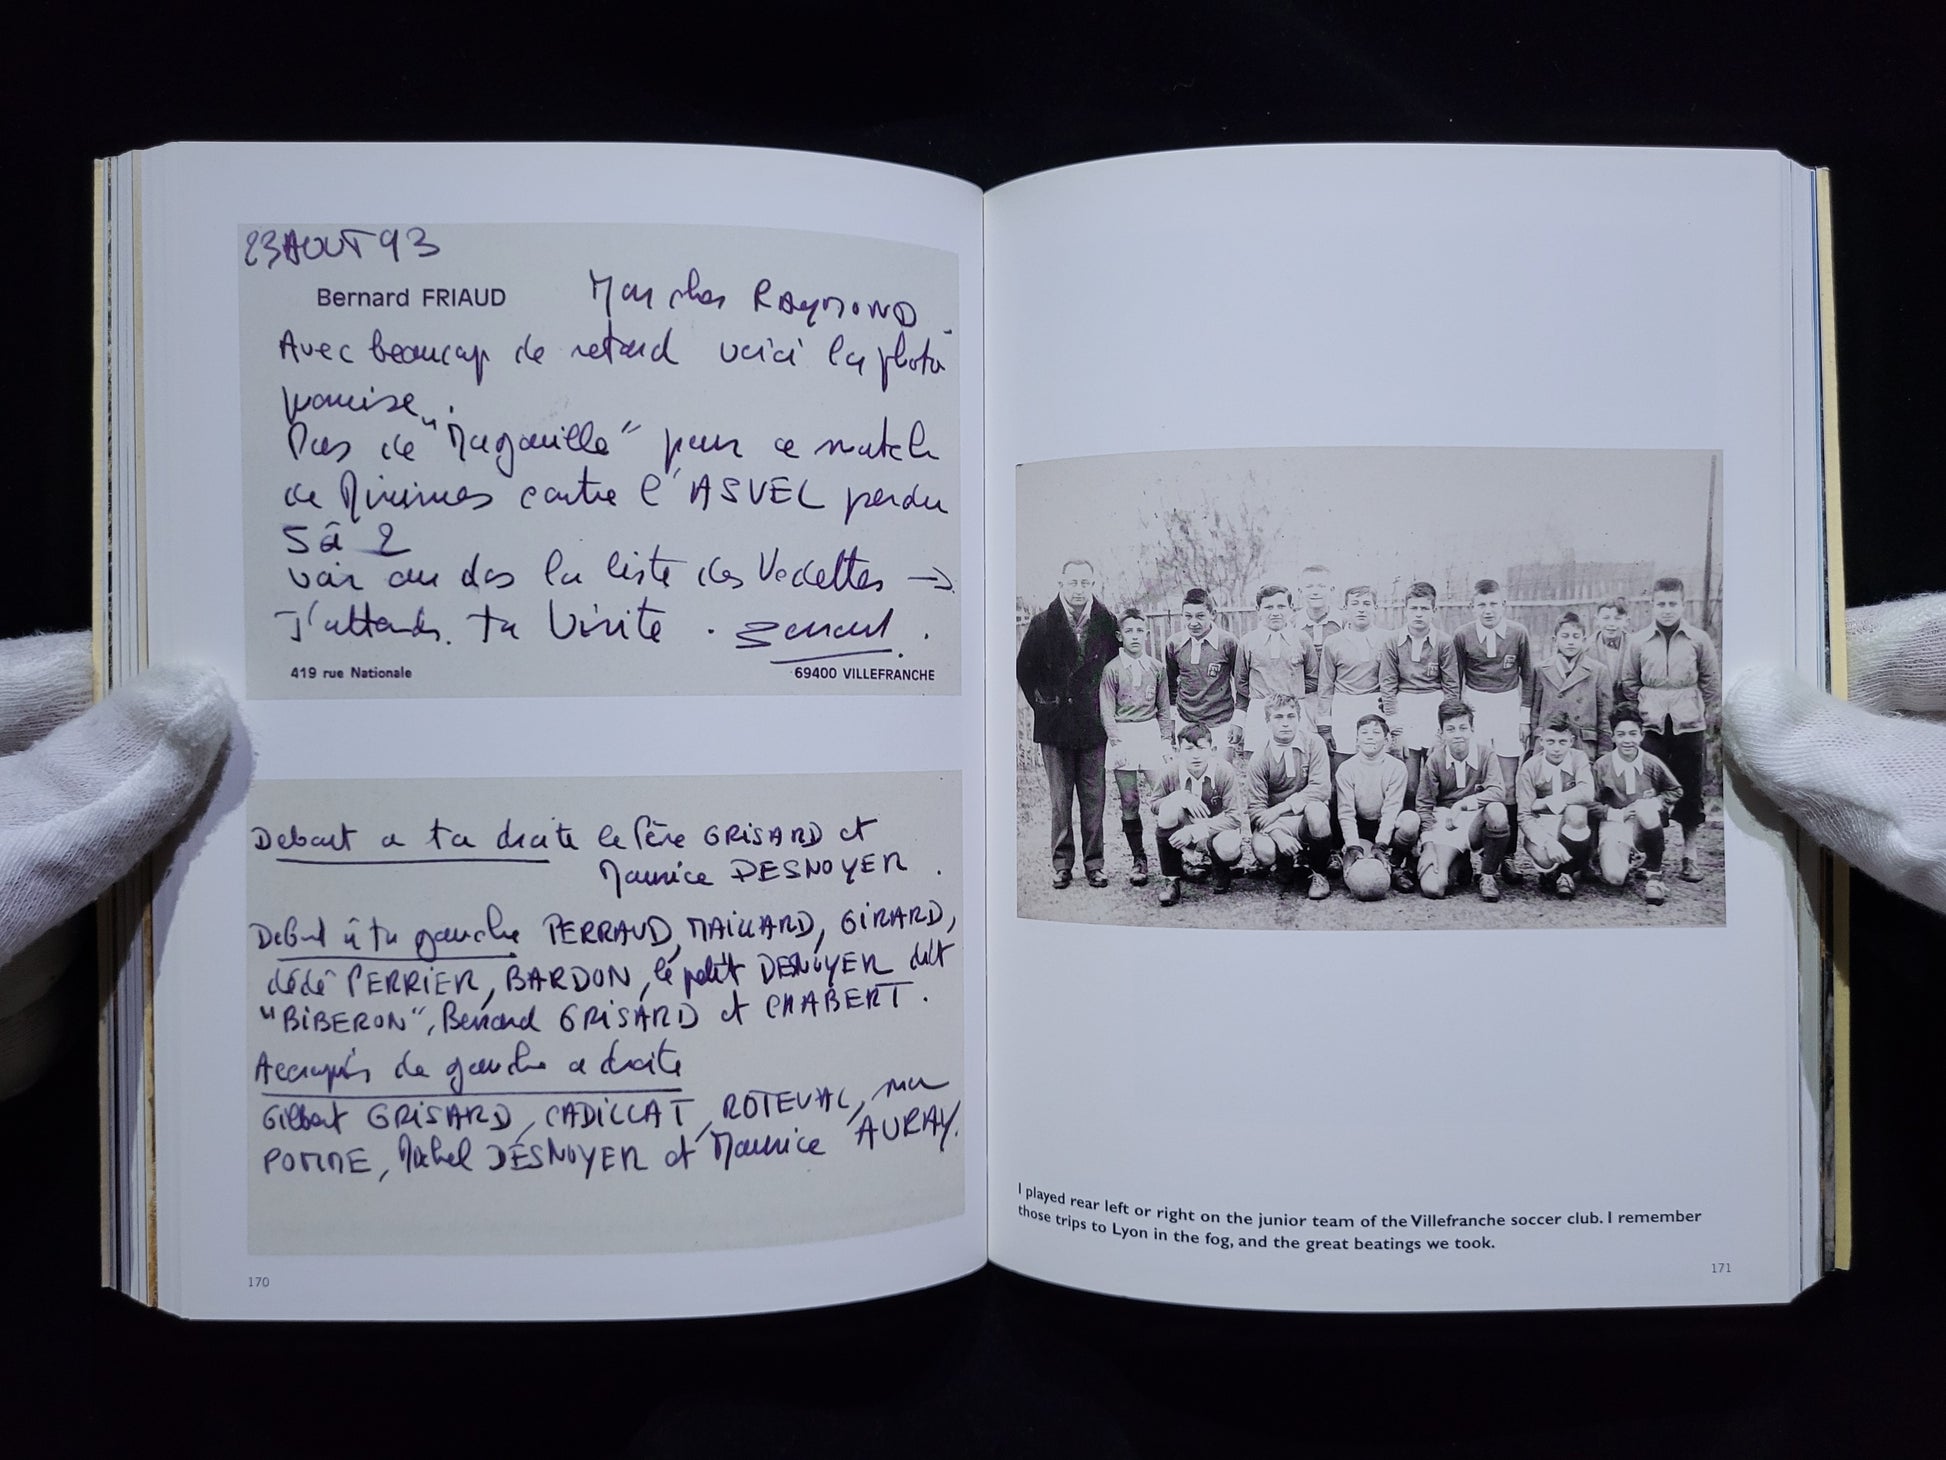 23 AOUT 93
Bernard FRIAUD
Mon cher RAYMOND.
Avec beaucoup de retard voici la photo
promise.
Pas de "Magouille" pour ce match
de Minimes contre l'ASVEL perdu
5 à 2
voir au dos la liste des Vedettes →
J'attends ta Visite. Bernard.
419 rue Nationale
69400 VILLEFRANCHE
Debout a ta droite le Père GRISARD et
Maurice DESNOYER.
Debout à ta gauche PERRAUD, MAILLARD, GIRARD,
dédé PERRIER, BARDON, le petit DESNOYER dit
"BIBERON", Bernard GRISARD et CHABERT.
Accroupis de gauche a droite
Gilbert GRISARD, CADILLAT, ROTEVAL,
POMME, Michel DESNOYER et Maurice AURAY.
170
I played rear left or right on the junior team of the Villefranche soccer club. I remember
those trips to Lyon in the fog, and the great beatings we took.
171